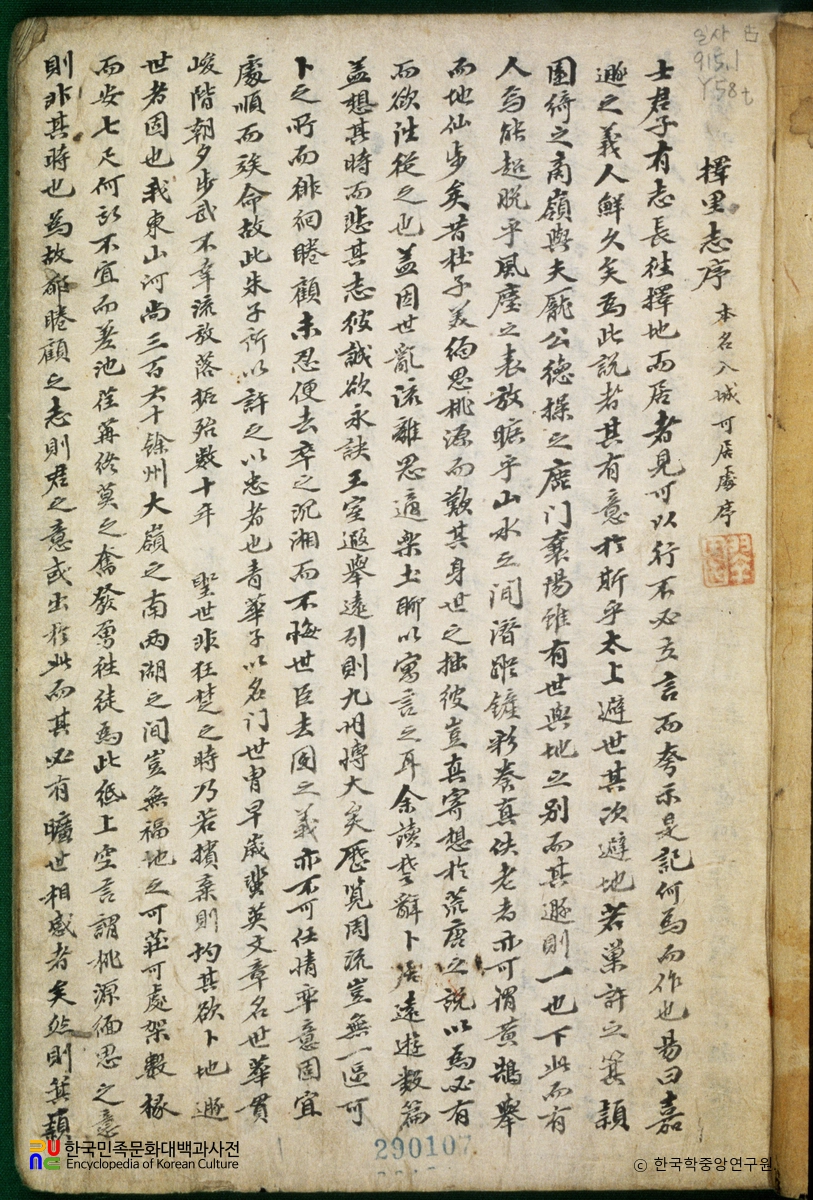 擇里志序 本名八域可居處序
士君子有志長往擇地而居者見可以行不必立言而夸示是記何爲而作也易曰嘉
遯之義人鮮久矣爲此說者其有意於斯乎太上避世其次避地若巢許之箕頴
園綺之商嶺與夫龐公德操之鹿门襄陽雖有世與地之别而其遯則一也下此而有
人焉能超脫乎風塵之表放曠乎山水之间潛 鏟彩養真佚老者亦可謂黃鵠擧
而地仙步矣昔杜子美緬思桃源而歎其身世之拙彼豈真寄想於荒唐之說以爲必有
而欲往從之也盖因世亂流離思適樂土聊以寓言之耳余讀楚辭卜居遠遊數篇
盖想其時而悲其志彼誠欲永訣王室遐擧遠引則九州博大矣歷覽周流豈無一區可
卜之所而徘徊睠顧未忍便去卒之沉湘而不悔世臣去國之義亦不可任情率意固宜
處順而俟命故此朱子所以許之以忠者也青華子以名门世胄早歲蜚英文章名世華貫
峻階朝夕步武不幸流放落拓殆數十年 聖世非狂楚之時乃若擯棄則均其欲卜地遯
世者固也我東山河尚三百六十餘州大嶺之南兩湖之间豈無福地之可莊可處架數椽
而安七尺何所不宜而 池荏苒終莫之奮發勇往徒爲此紙上空言謂桃源緬思之意
則非其時也爲故鄉睠顧之志則君之意或出於此而其必有曠世相感者矣然則箕頴
일사 古
915.1
Y58t
290107
한국민족문화대백과사전
Encyclopedia of Korean Culture
© 한국학중앙연구원